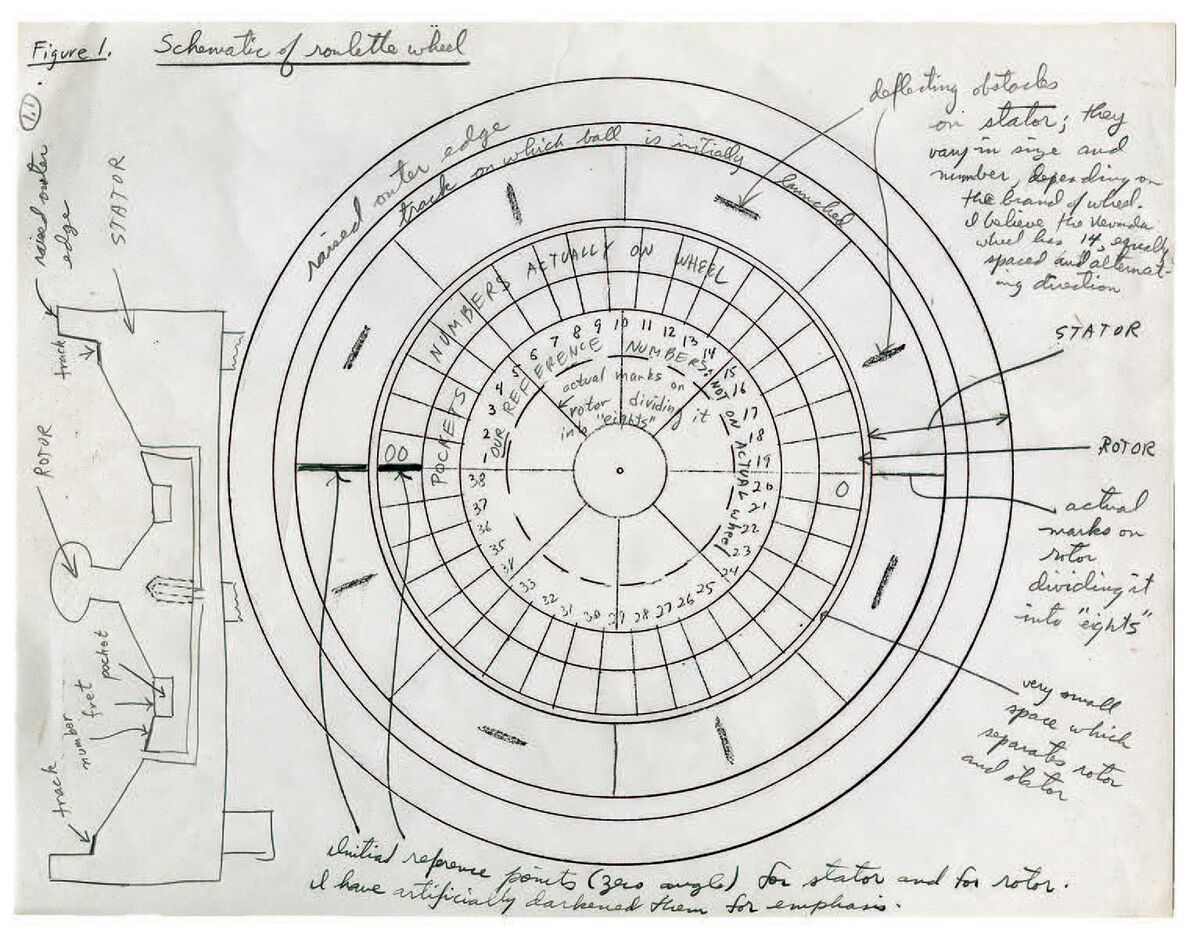 Figure 1.
Schematic of roulette wheel
1.1
raised outer
edge
STATOR
track
ROTOR
pocket
fret
number
track
raised outer edge
track on which ball is initially launched
NUMBERS ACTUALLY ON WHEEL
POCKETS
OUR REFERENCE NUMBERS: NOT ON ACTUAL wheel
1 2 3 4 5 6 7 8 9 10 11 12 13 14 15 16 17 18 19 20 21 22 23 24 25 26 27 28 29 30 31 32 33 34 35 36 37 38
actual marks on
rotor dividing it
into "eights"
00
0
deflecting obstacles
on stator; they
vary in size and
number, depending on
the brand of wheel.
I believe the Nevada
wheel has 14, equally
spaced and alternat-
ing direction
STATOR
ROTOR
actual
marks on
rotor
dividing it
into "eights"
very small
space which
separates rotor
and stator
Initial reference points (zero angle) for stator and for rotor.
I have artificially darkened them for emphasis.